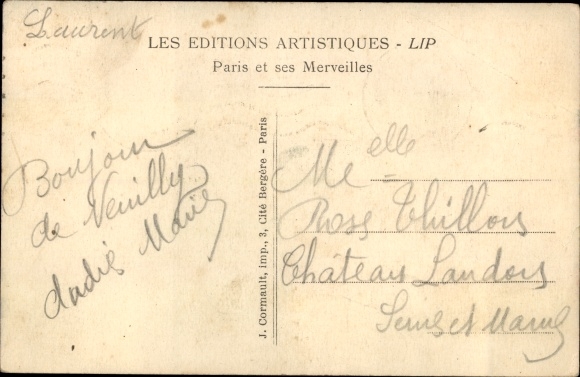 Laurent
LES EDITIONS ARTISTIQUES - LIP
Paris et ses Merveilles
Bonjour
de Neuilly
Marie
J. Cormault, imp., 3, Cité Bergère - Paris
Melle
Rose Thillon
Château Landon
Seine et Marne